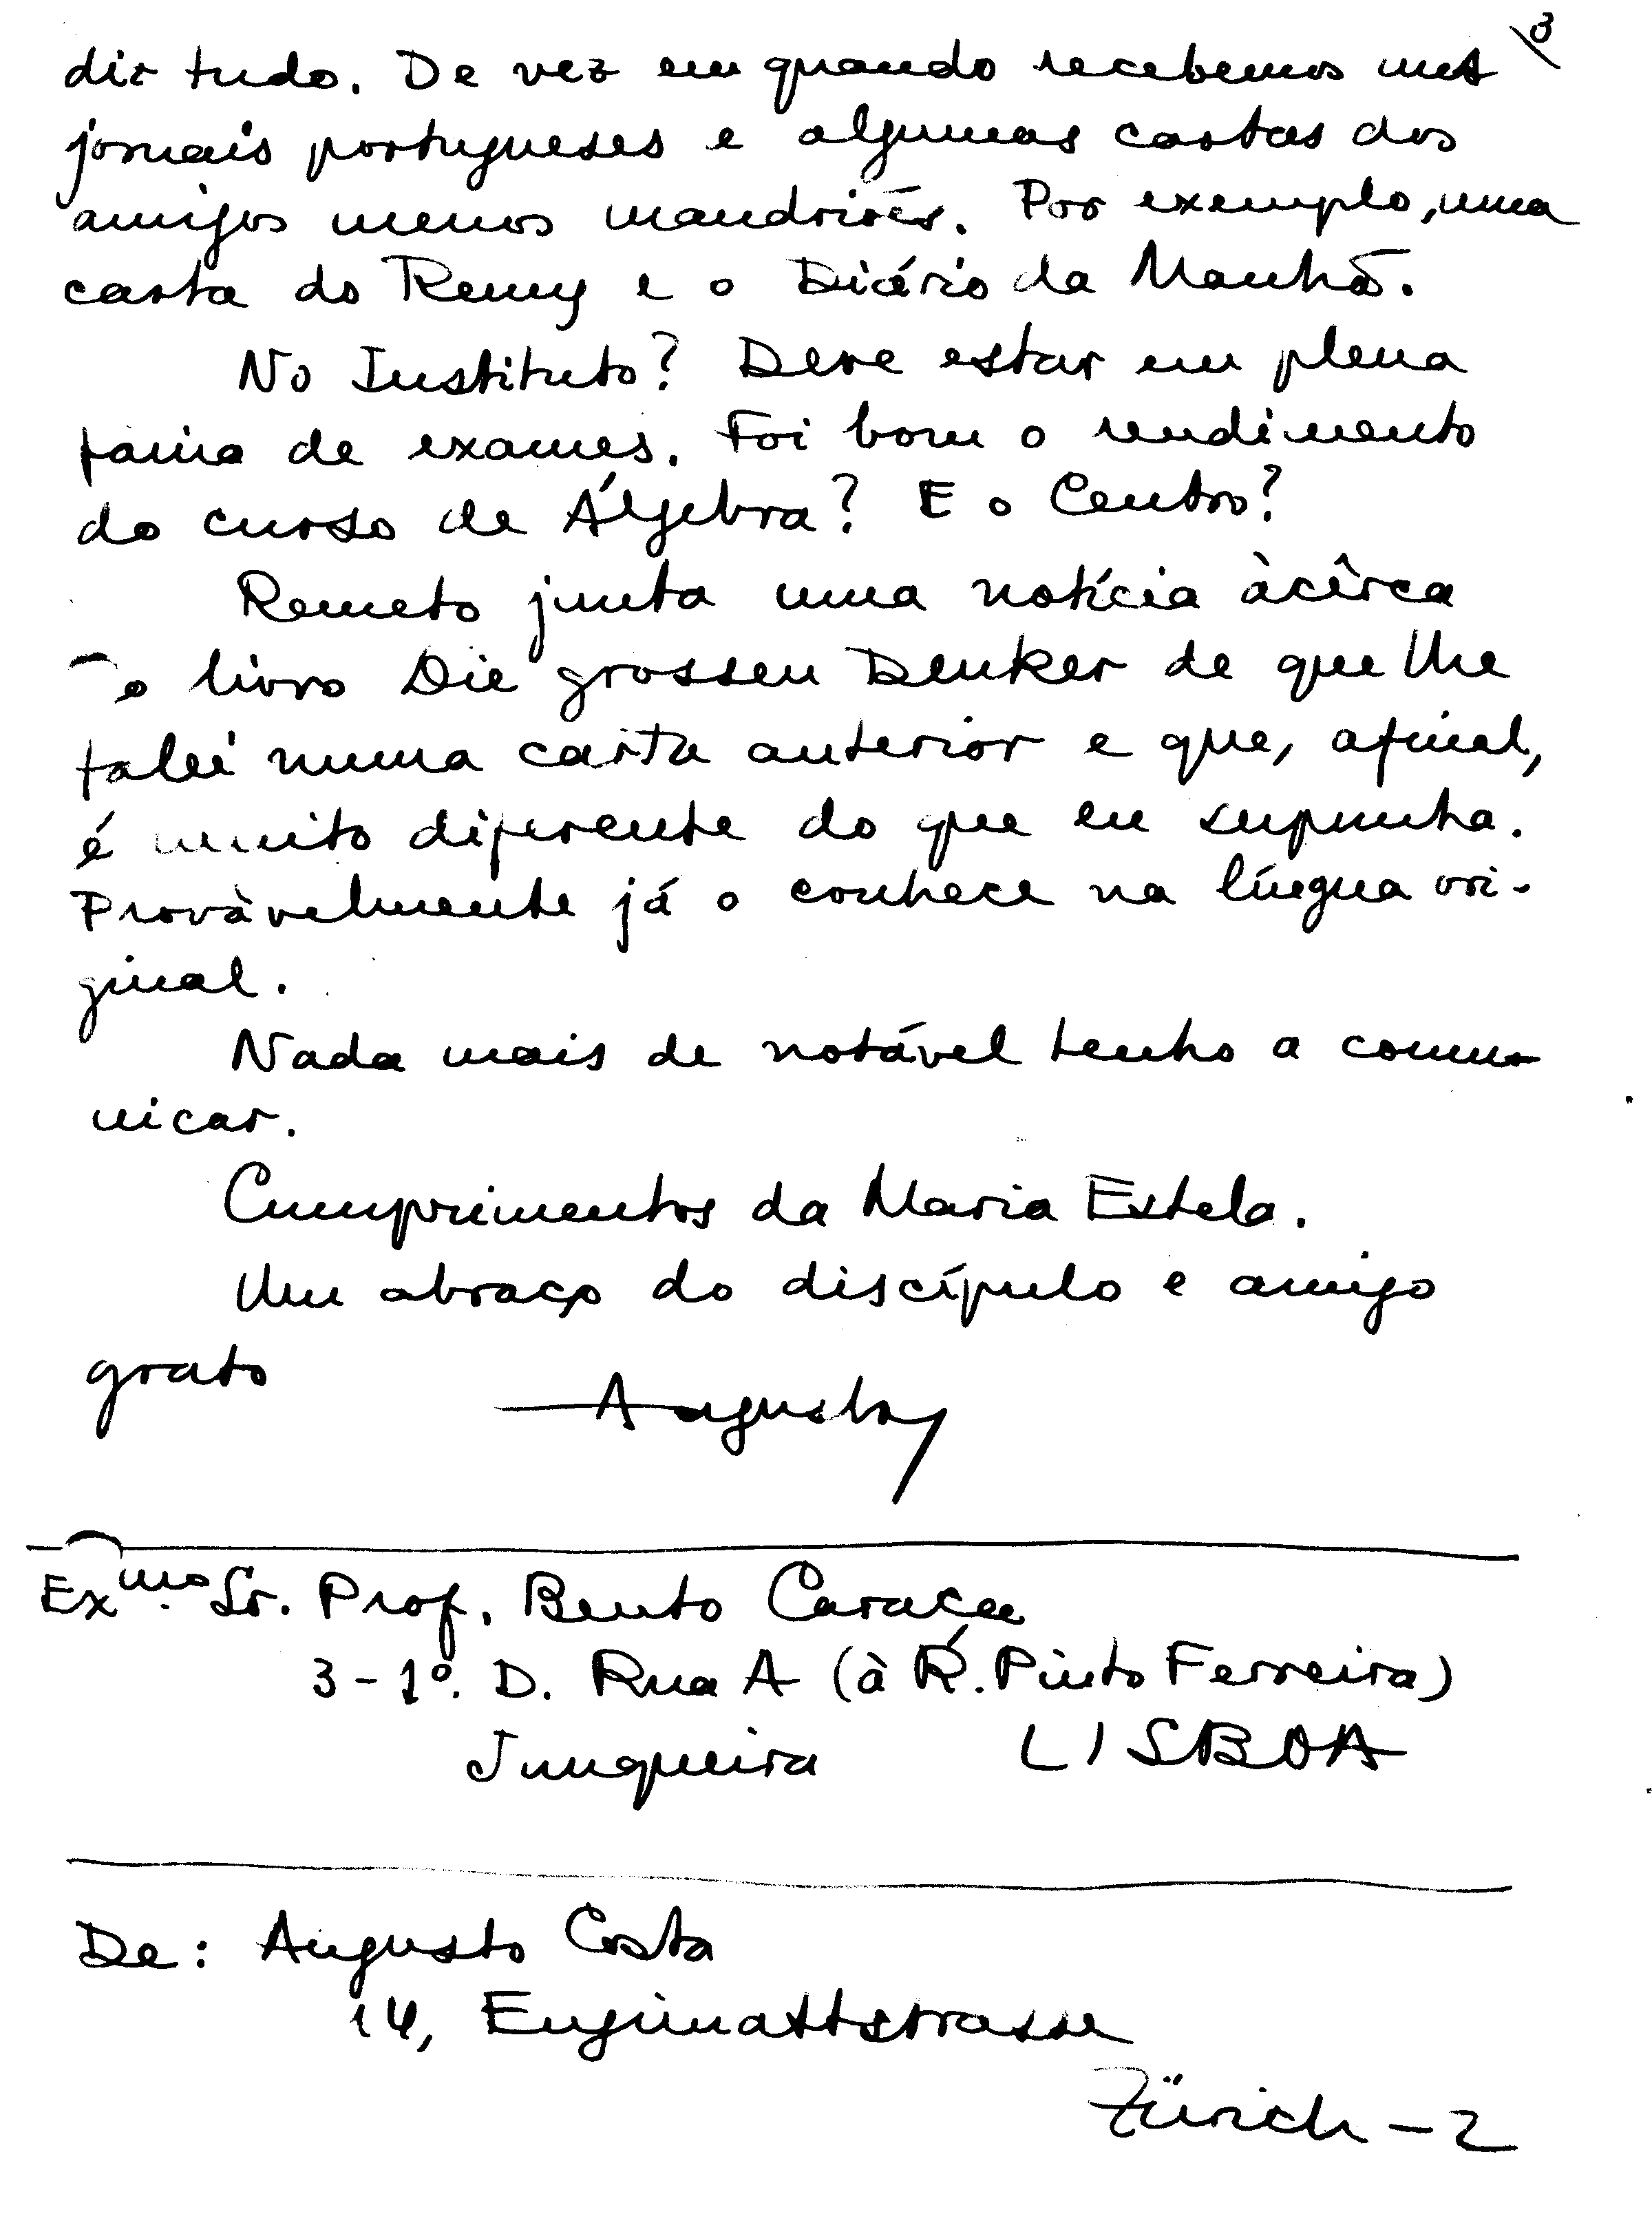 3
diz tudo. De vez em quando recebemos uns
jornais portugueses e algumas cartas dos
amigos menos mandriões. Por exemplo, uma
carta do Remy e o Diário da Manhã.
No Instituto? Deve estar em plena
faina de exames. Foi bom o rendimento
do curso de Álgebra? E o Centro?
Remeto junta uma notícia àcêrca
o livro Die grossen Denker de que lhe
falei numa carta anterior e que, afinal,
é muito diferente do que eu supunha.
Provàvelmente já o conhece na língua ori-
ginal.
Nada mais de notável tenho a comu-
nicar.
Cumprimentos da Maria Estela.
Um abraço do discípulo e amigo
grato
Augusto
Exmo. Sr. Prof. Bento Caraça
3-1º. D. Rua A (à R. Pinto Ferreira)
Junqueira LISBOA
De: Augusto Costa
14, Engimattstrasse
Zürich-2